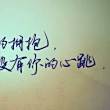 的拥抱，
没有你的心跳，